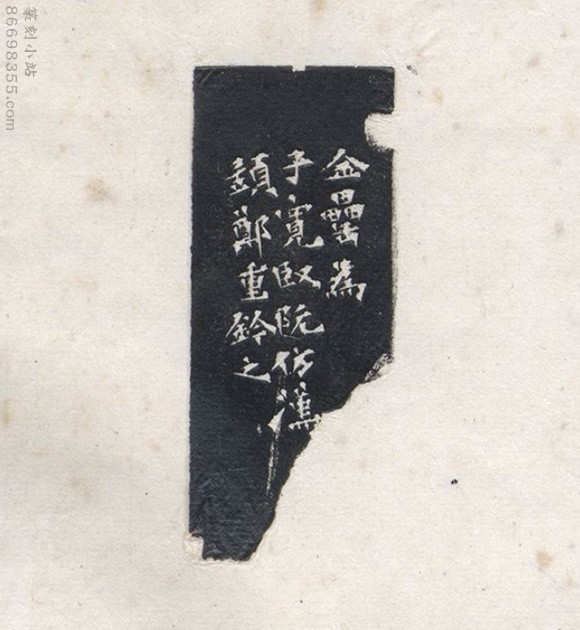 金罍為
子寬臤阮仿漢
鎮鄭重鈐之
篆刻小站
86698355.com